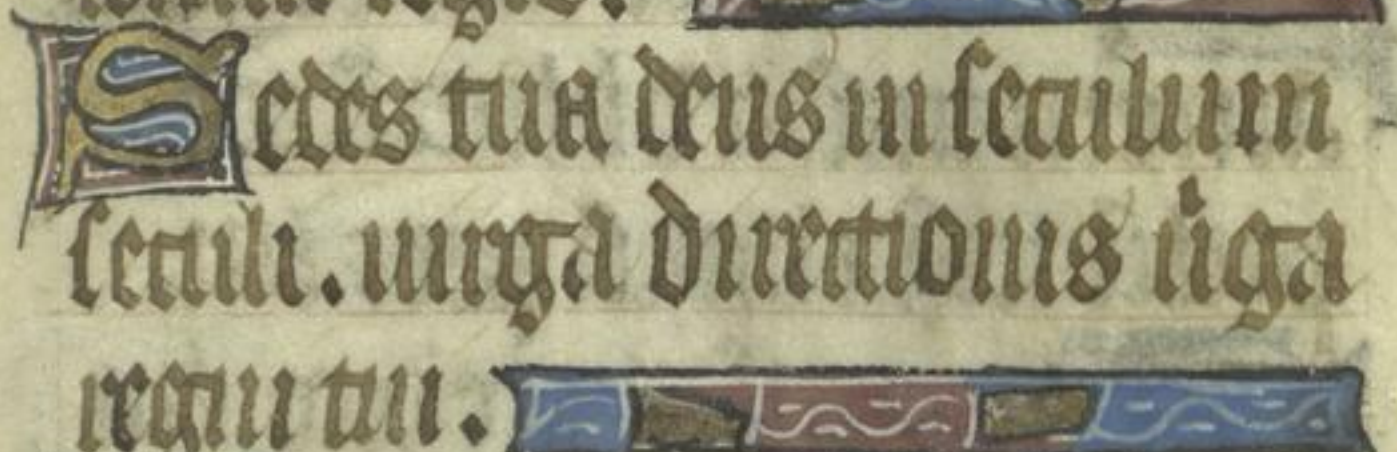 Sedes tua deus in seculum
seculi. uirga directionis uͥga
regni tui.